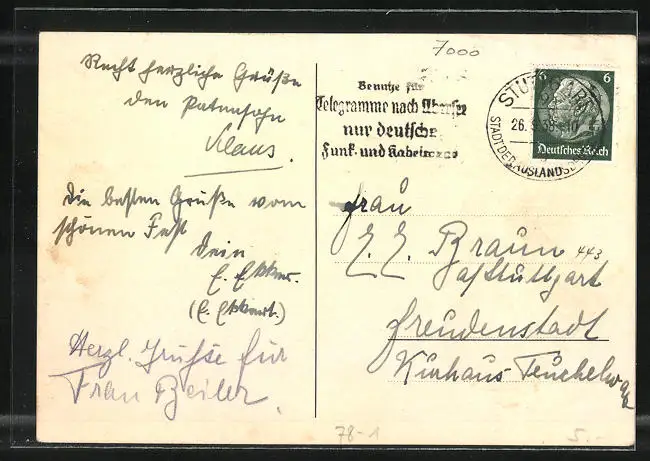 7000
Recht herzliche Grüße
den Patensohn
Klaus.
Die besten Grüße vom
schönen Fest
Dein
E. Ekkert.
(E. Ekkert.)
Herzl. Grüße für
Frau Beiler.
Benutze für
Telegramme nach Übersee
nur deutsche
Funk- und Kabelwege
STUTTGART
26. 9. 38
STADT DER AUSLANDSDEUTSCHEN
6 6
Deutsches Reich
Frau
E. E. Braun 443
a/Stuttgart
Freudenstadt
Kurhaus Teuchelwald
78-1
5.-